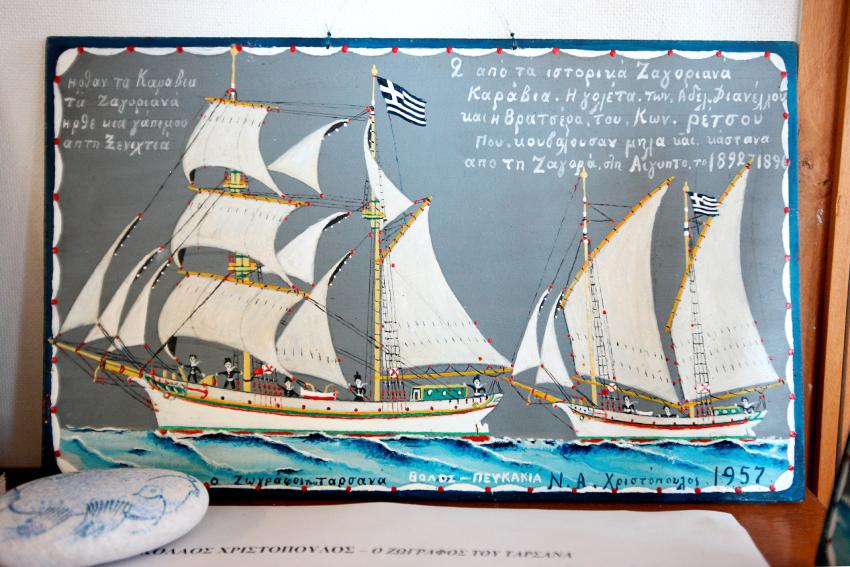 ηρθαν τα Καράβια
τα Ζαγοριανά
ηρθε κιά
απτη Ξενιχτιά
2 από τα ιστορικά Ζαγοριανά
Καράβια. Η γολέτα. των. Αδελ. Διανέλλου
και η Βρατσέρα. του. Κων. ρετσου
που. κουβαλουσαν μηλα και. κάστανα
απο τη Ζαγορά, στη Αίγυπτο, το 1892-1896
ο Ζωγράφος τη ταρσανα ΒΟΛΟΣ - ΠΕΥΚΑΚΙΑ Ν. Α. Χριστόπουλος. 1957
ΚΟΛΑΟΣ ΧΡΙΣΤΟΠΟΥΛΟΣ – Ο ΖΩΓΡΑΦΟΣ ΤΟΥ ΤΑΡΣΑΝΑ